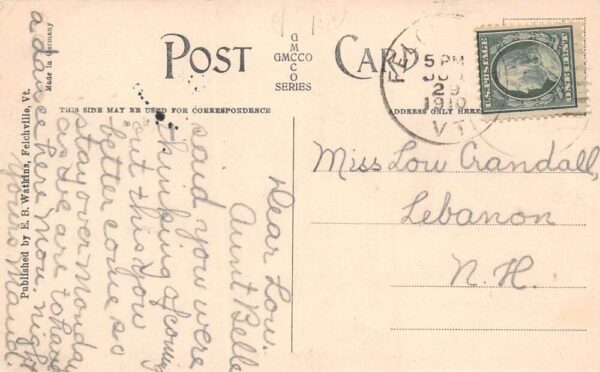 POST CARD
G
M
GMCCO
C
O
SERIES
THIS SIDE MAY BE USED FOR CORRESPONDENCE
ADDRESS ONLY HERE
Made in Germany
Published by E. B. Watkins, Felchville, Vt.
5 PM
29
1910
VT.
U.S. POSTAGE
ONE CENT
Miss Lou Crandall,
Lebanon
N. H.
Dear Lou.
Aunt Belle
said you were
thinking of coming
out this you
better come so
stay over Monday
as we are to have
a dance here Mon. night
Yours Maud.